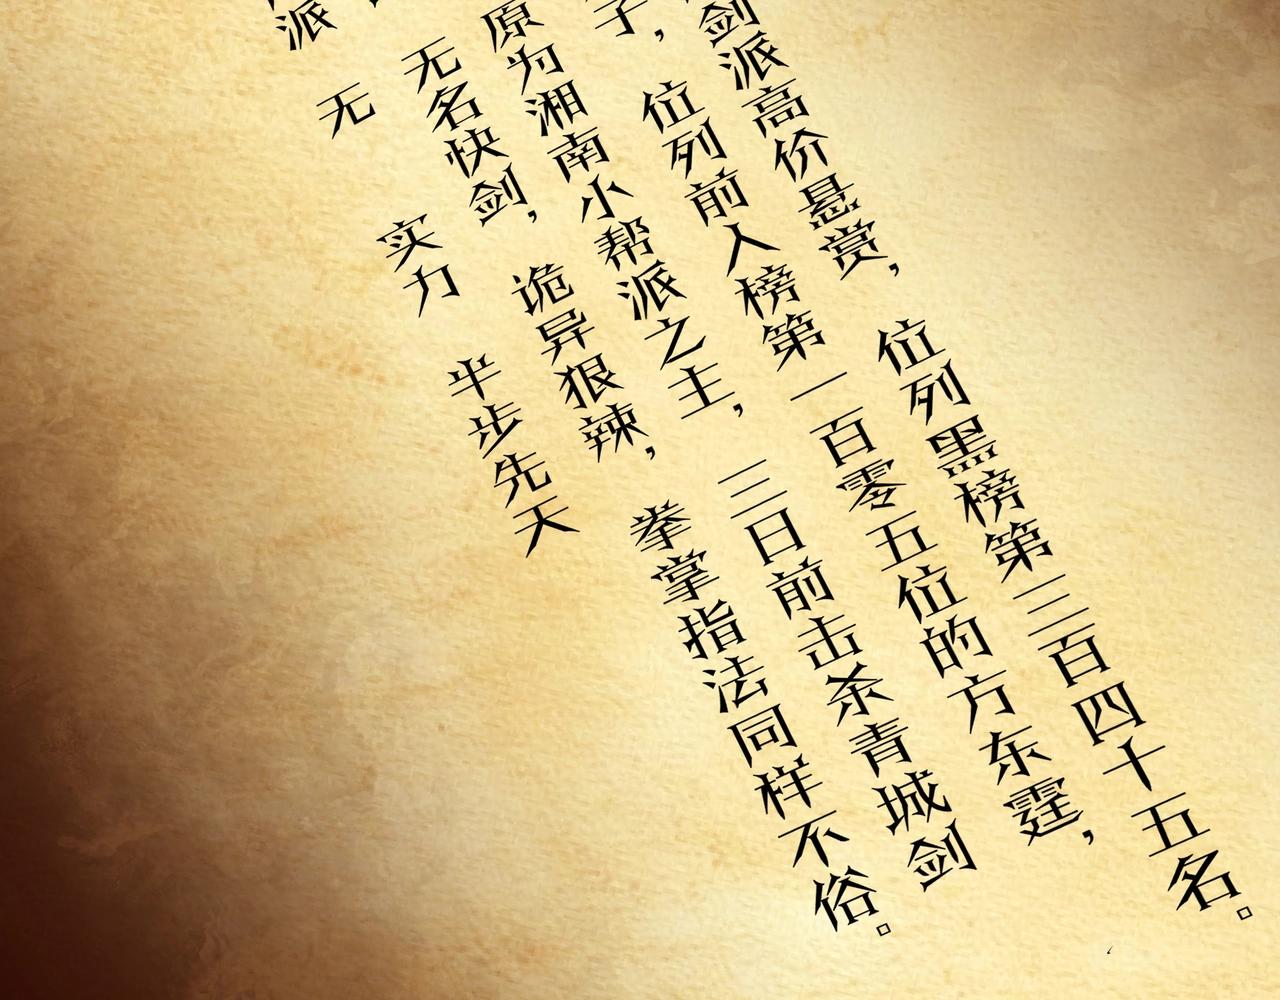 派 无 实力 半步先天
无名快剑，诡异狠辣，拳掌指法同样不俗。
原为湘南小帮派之主，三日前击杀青城剑
子，位列前人榜第一百零五位的方东霆，
剑派高价悬赏，位列黑榜第三百四十五名。